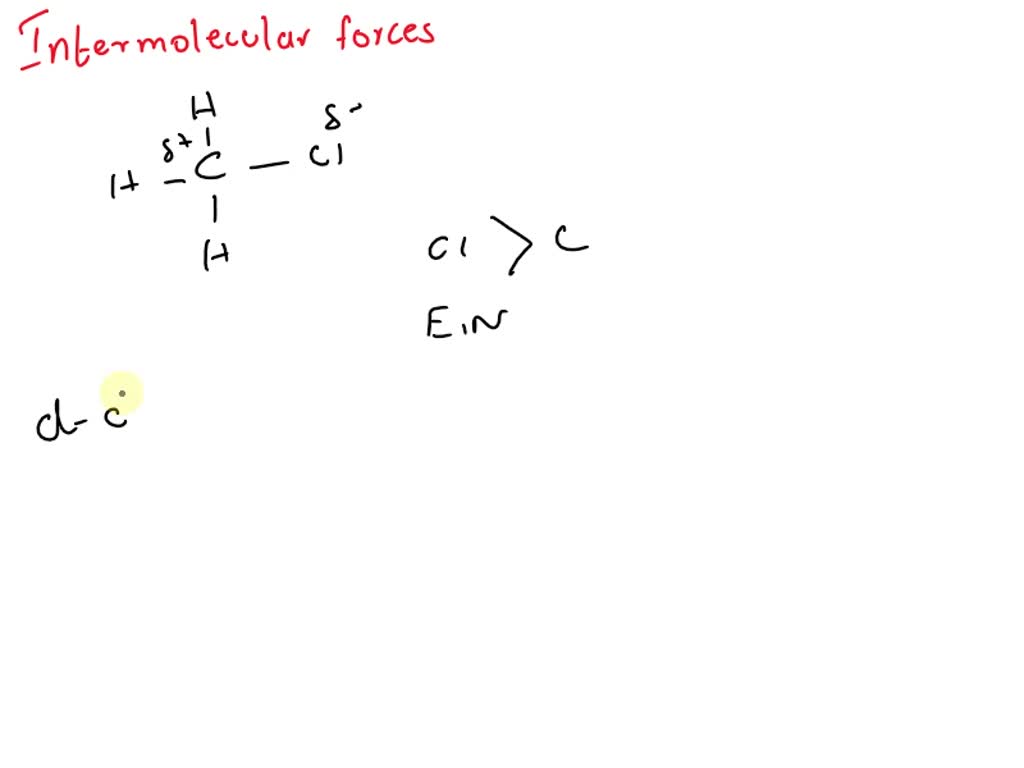 Intermolecular forces
H
δ+ δ-
H - C - Cl
H
Cl > C
E.N
d-c